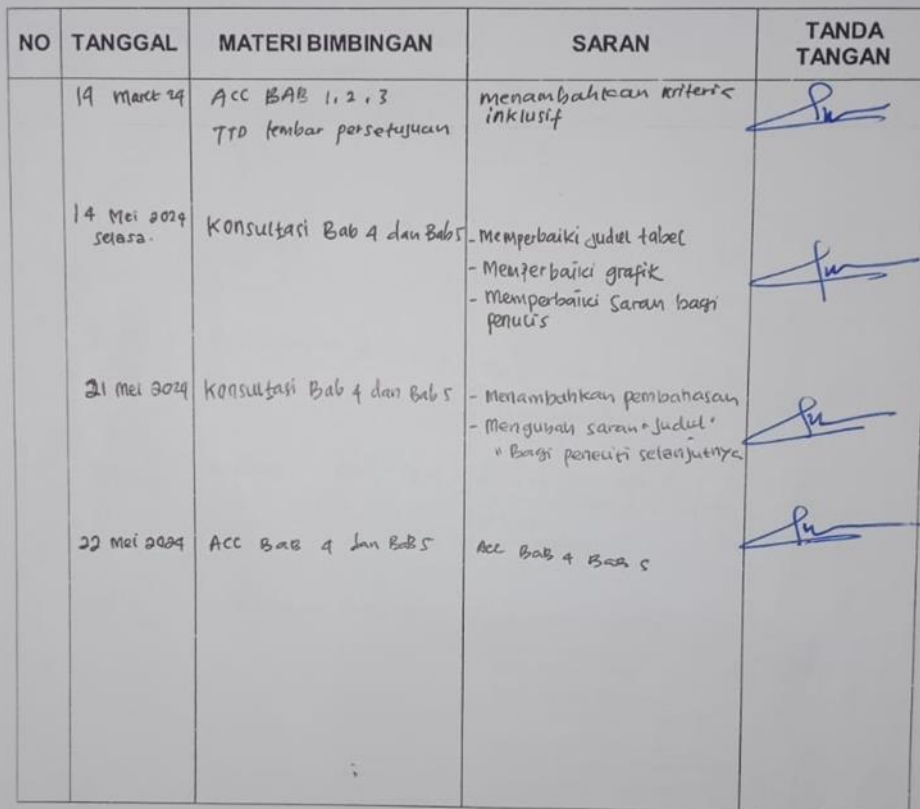 NO TANGGAL MATERI BIMBINGAN SARAN TANDA TANGAN
14 Maret 24 ACC BAB 1, 2, 3 menambahkan kriteria
TTD lembar persetujuan inklusif
14 Mei 2024 Konsultasi Bab 4 dan Bab 5 - Memperbaiki judul tabel
selasa. - Memperbaiki grafik
- Memperbaiki Saran bagi
penulis
21 Mei 2024 Konsultasi Bab 4 dan Bab 5 - Menambahkan pembahasan
- Mengubah saran "Judul"
"Bagi peneliti selanjutnya
22 Mei 2024 ACC BAB 4 dan BAB 5 Acc BAB 4 BAB 5